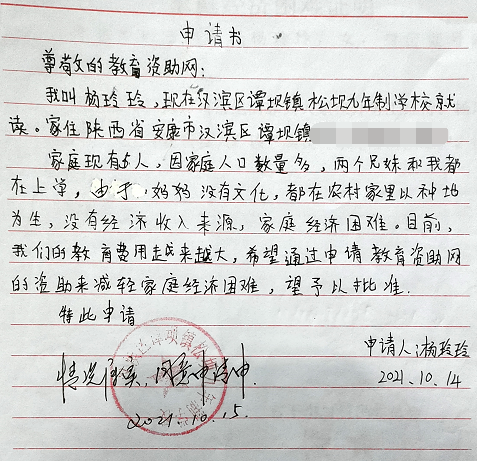 申请书
尊敬的教育资助网：
我叫杨玲玲，现在汉滨区谭坝镇松坝九年制学校就
读。家住陕西省安康市汉滨区谭坝镇
家庭现有5人，因家庭人口数量多，两个兄妹和我都
在上学，由于妈妈没有文化，都在农村家里以种地
为生，没有经济收入来源，家庭经济困难。目前，
我们的教育费用越来越大，希望通过申请教育资助网
的资助来减轻家庭经济困难，望予以批准.
特此申请
申请人：杨玲玲
2021.10.14
情况属实，同意申请
2021.10.15.